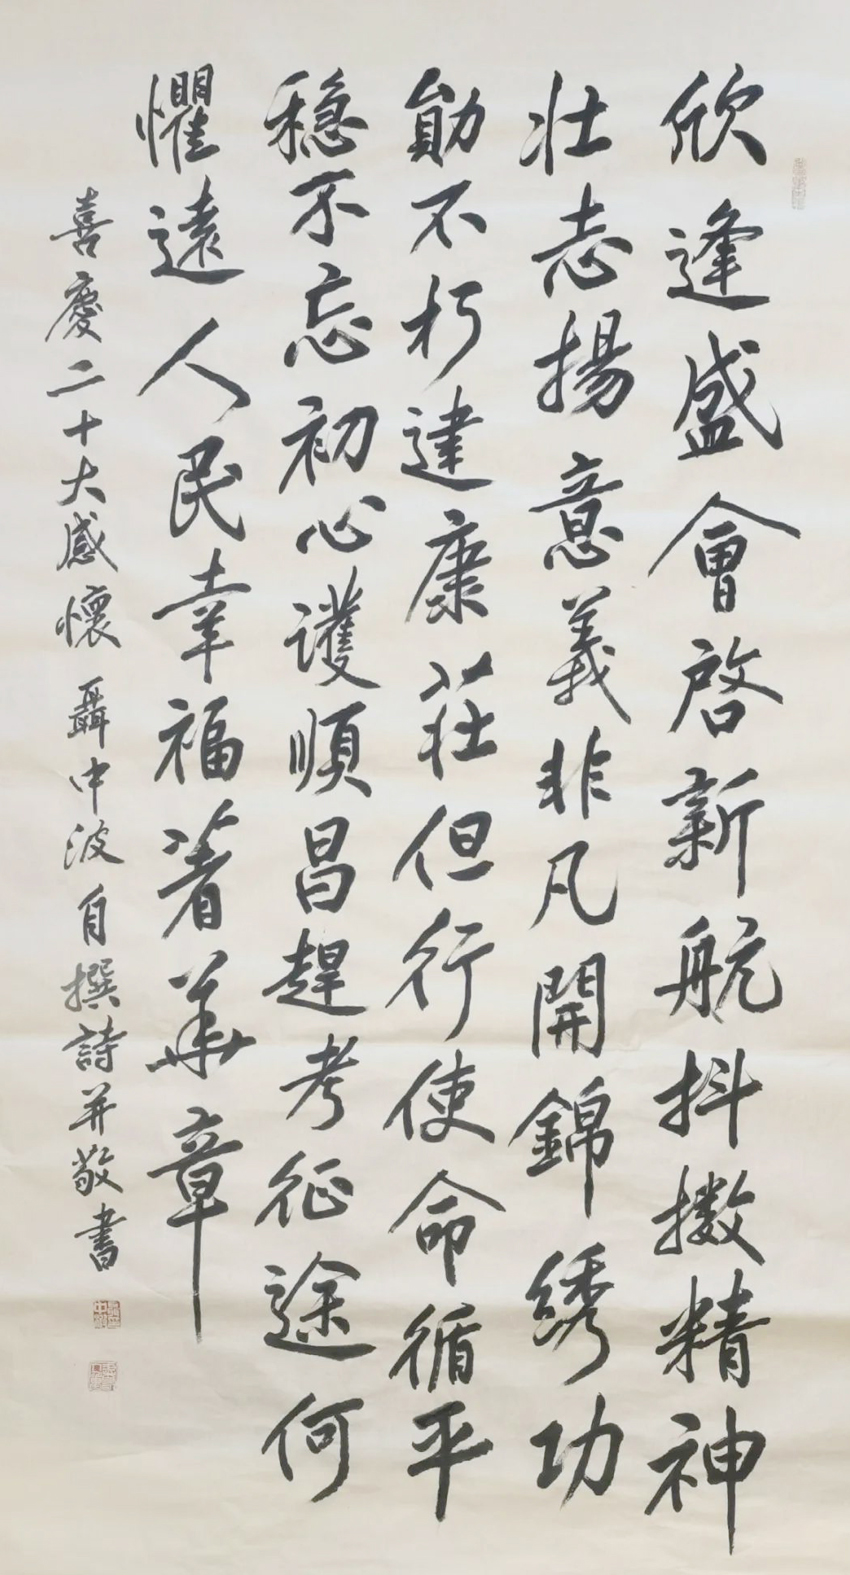 欣逢盛會啓新航抖擞精神
壯志揚意義非凡開錦绣功
勛不朽建康莊但行使命循平
穏不忘初心護順昌趕考征途何
懼遠人民幸福著華章
喜慶二十大感懷聶中波自撰詩并敬書